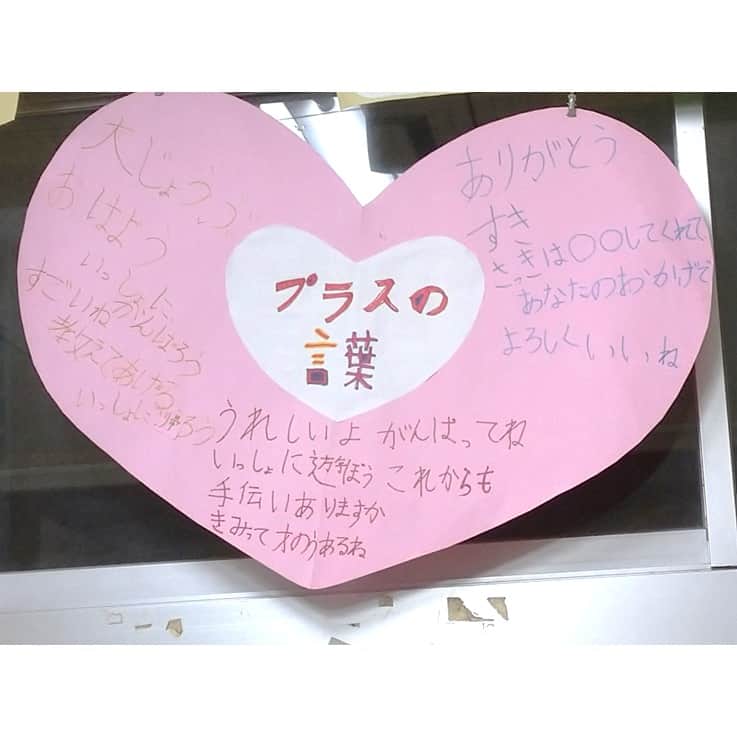 プラスの
言葉
大じょうぶ
おはよう
いっしょに
がんばろう
すごいね
教えてあげる
いっしょにやろう
ありがとう
すき
さっきは〇〇してくれて
あなたのおかげで
よろしく いいね
うれしいよ がんばってね
いっしょに遊ぼう これからも
手伝いありますか
きみって才のうあるね